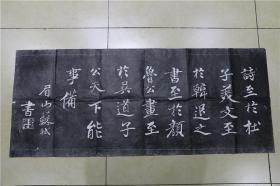 詩至於杜
子美文至
於韓退之
書至於顏
魯公畫至
於吳道子
公天下能
事備
眉山蘇軾
書